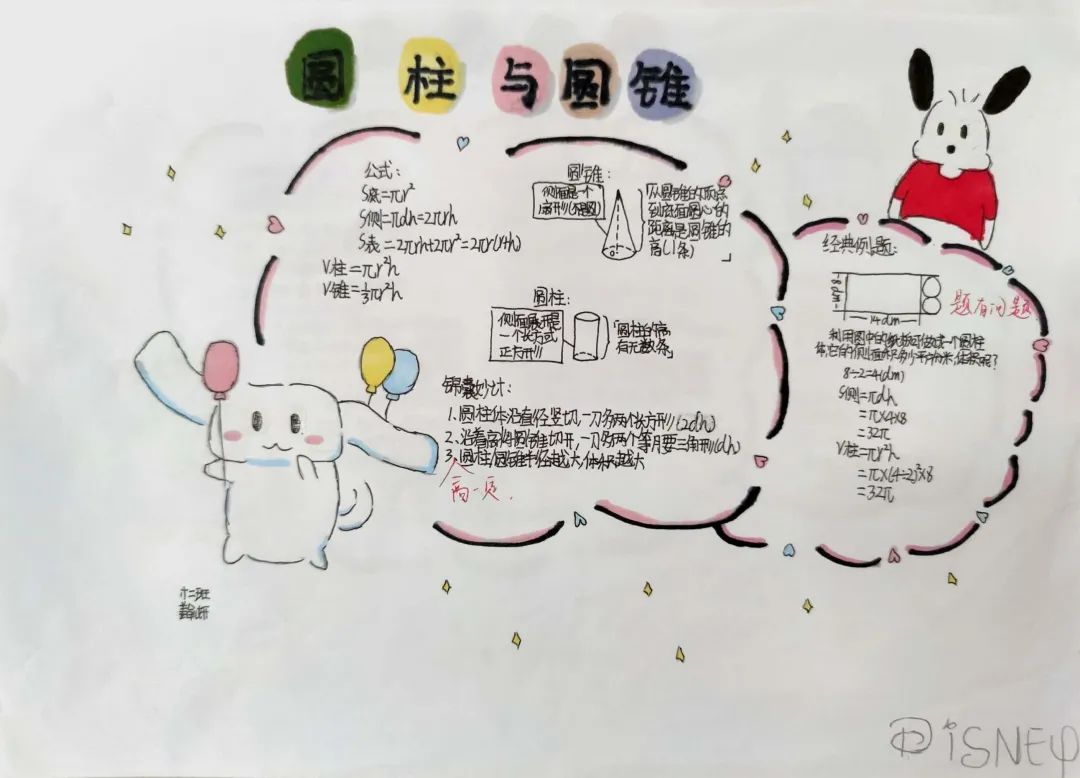 圆柱与圆锥
公式:
S底=πr²
S侧=πdh=2πrh
S表=2πrh+2πr²=2πr(r+h)
V柱=πr²h
V锥=⅓πr²h
圆锥:
侧面是一个
扇形
从圆锥的顶点
到底面圆心的
距离是圆锥的
高(1条)
圆柱:
侧面展开是
一个长方形
正方形
圆柱的高
有无数条
锦囊妙计:
1.圆柱体沿直径竖切,一刀多两个长方形(2dh)
2.沿着高将圆锥切开,一刀多两个等月要三角形(dh)
3.圆柱/圆锥半径越大,体积越大
高一定.
经典例题:
8dm
14dm
题有问题.
利用图中的纸板可做成一个圆柱
体,它的侧面积多少平方分米,体积呢?
8÷2=4(dm)
S侧=πdh
=π×4×8
=32π
V柱=πr²h
=π×(4÷2)²×8
=32π
六二班
DiSNEY